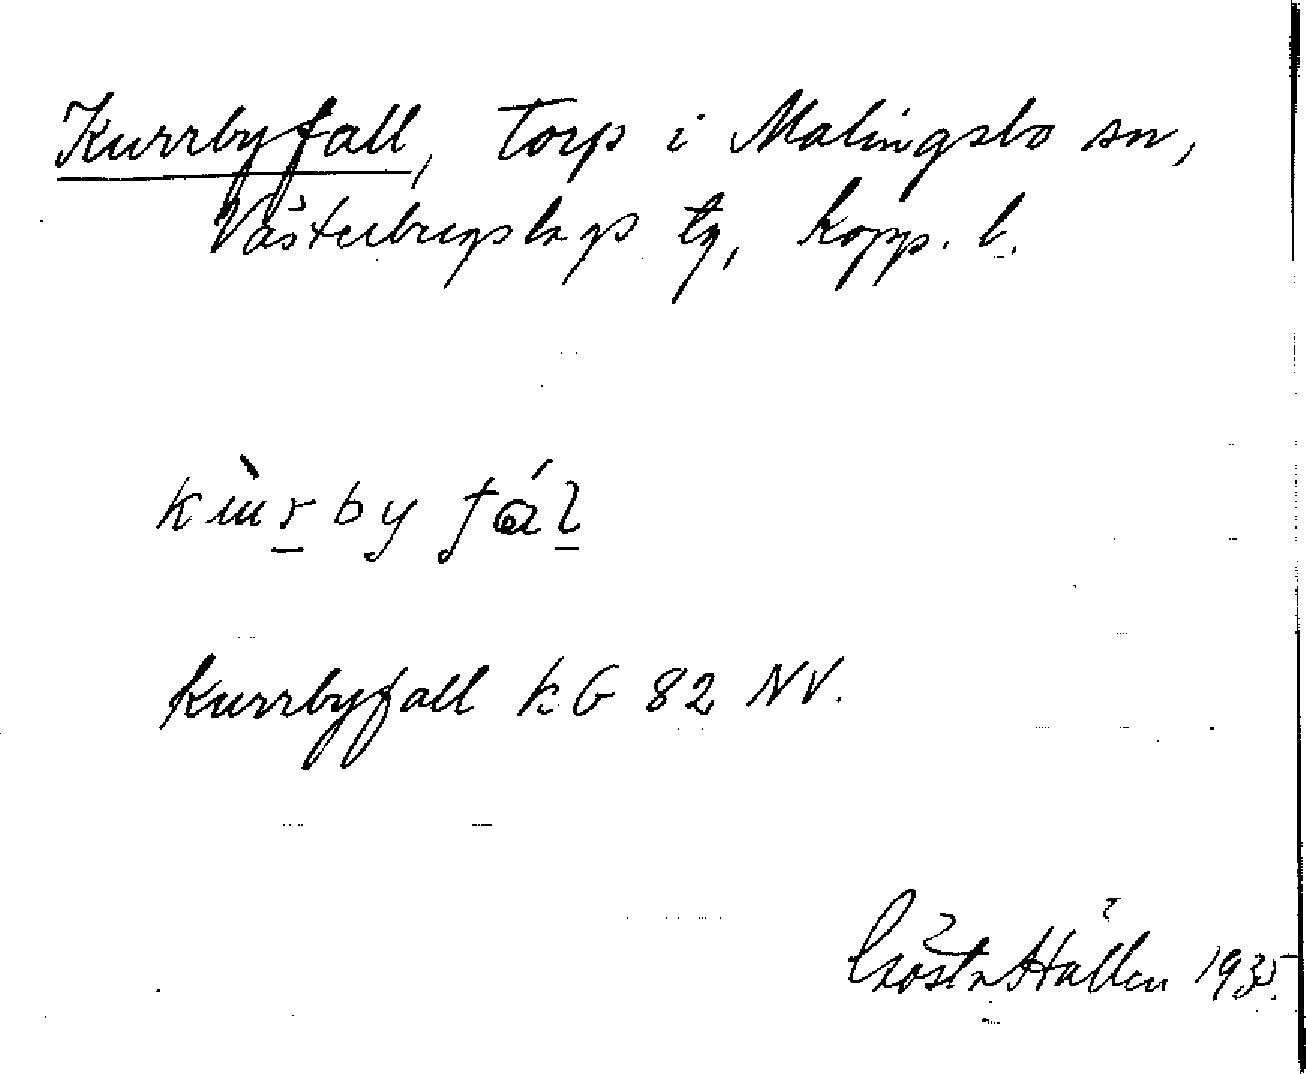 Kurrbyfall, Torp i Malingsbo sn,
Västerbergslags tg, Kopp. l.
kùrby fál
Kurrbyfall kG 82 NV.
Gösta Hallén 1935.